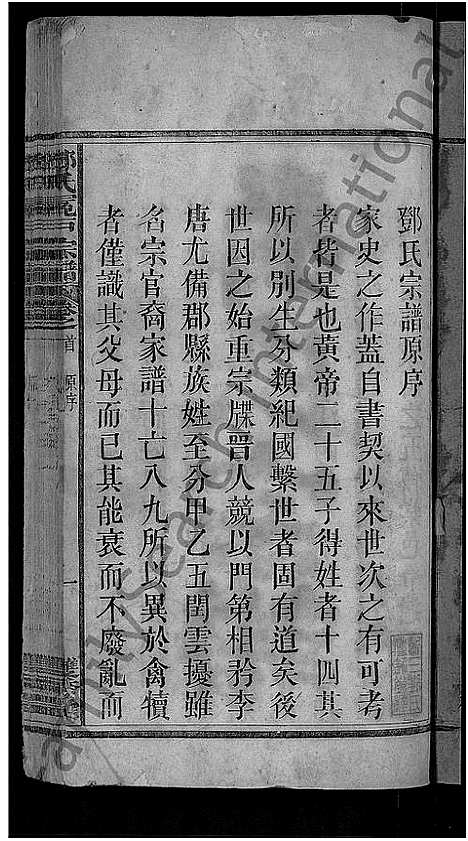 鄧氏宗譜原序
家史之作蓋自書契以來世次之有可考
者皆是也黃帝二十五子得姓者十四其
所以別生分類紀國繫世者固有道矣後
世因之始重宗牒晉人競以門第相矜李
唐尤備郡縣族姓至分甲乙五閏雲擾雖
名宗官裔家譜十亡八九所以異於禽犢
者僅識其父母而已其能衰而不廢亂而
首 原序
一